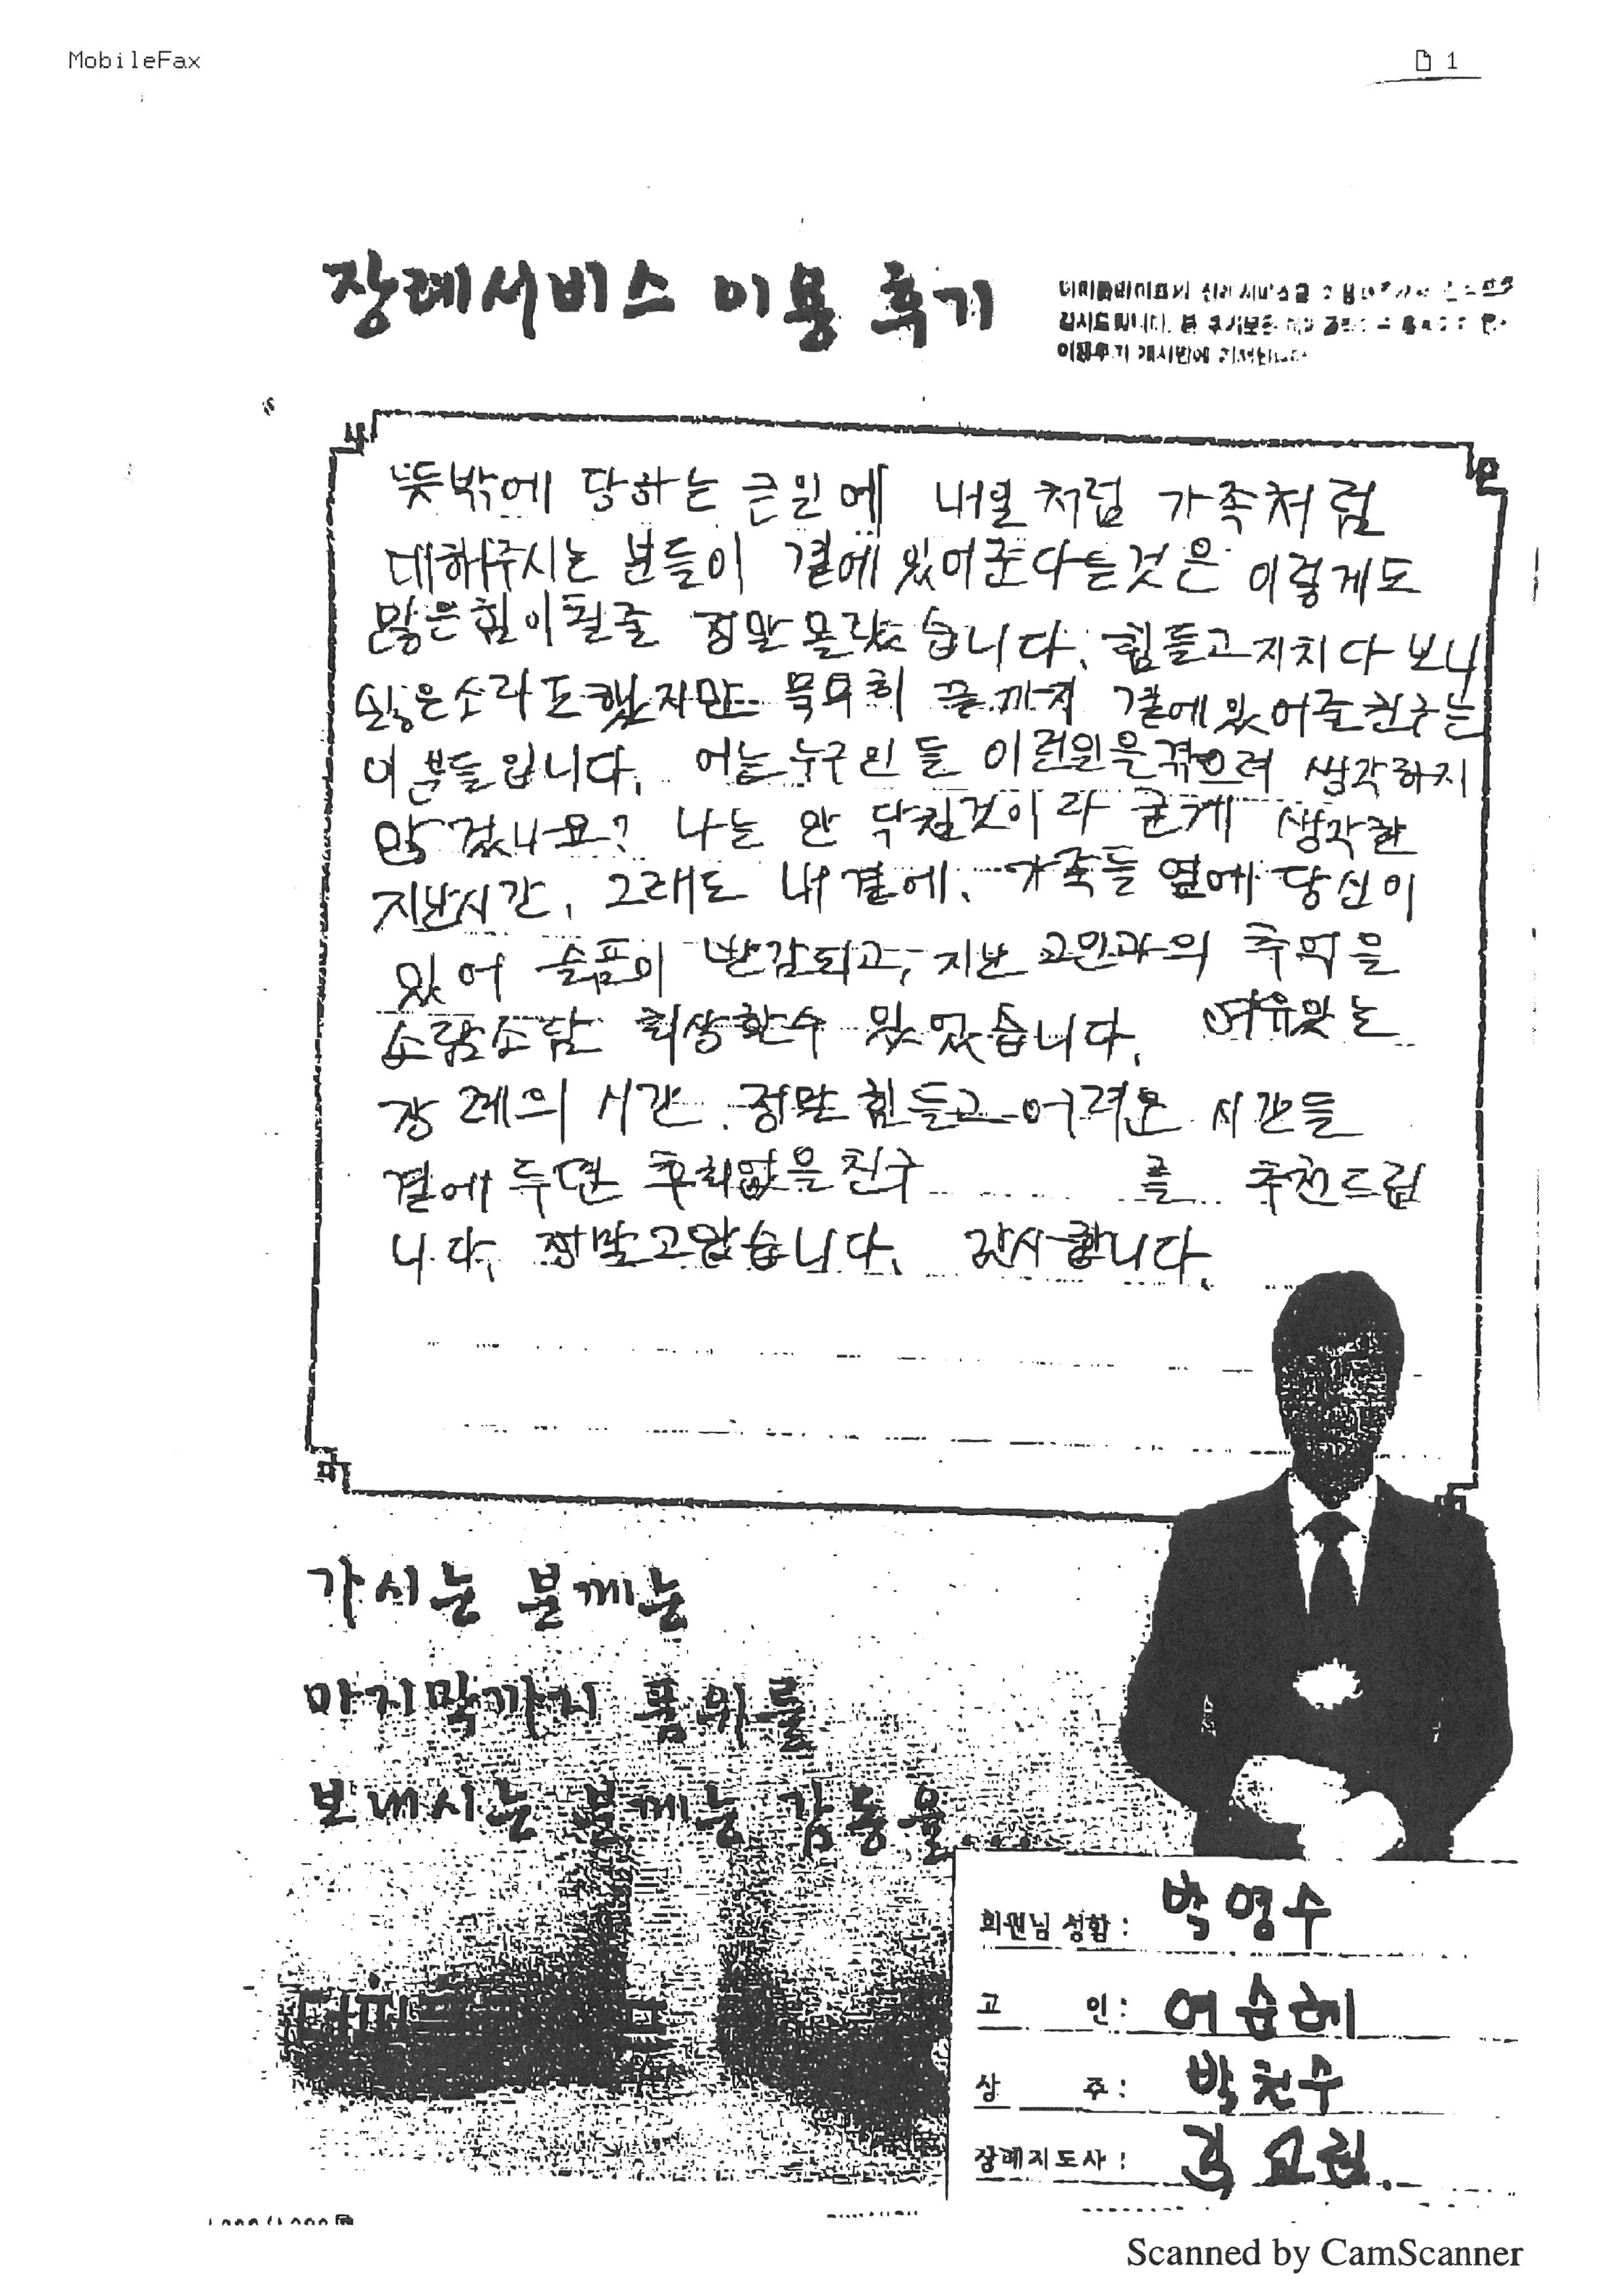 MobileFax
1
장례서비스 이용 후기
뜻밖에 당하는 큰일에 내일처럼 가족처럼
대해주시는 분들이 곁에 있어준다는것은 이렇게도
많은힘이될줄 정말몰랐습니다. 힘들고지치다 보니
싫은소리도했지만 묵묵히 끝까지 곁에있어준친구는
이분들입니다. 어느누구인들 이런일은겪으려 생각하지
않겠나요? 나는 안 닥칠것이라 굳게 생각한
지난시간, 그래도 내 곁에, 가족들 옆에 당신이
있어 슬픔이 반감되고, 지난 고인과의 추억을
소담소담 회상할수 있었습니다. 여유있는
장례의 시간. 정말 힘들고 어려운 시간들
곁에 두면 후회없을친구 를 추천드립
니다. 정말고맙습니다. 감사합니다.
가시는 분께는
마지막까지 품위를
보내시는 분께는 감동을
회원님 성함: 박영수
고 인: 여순혜
상 주: 박천수
장례지도사:
Scanned by CamScanner